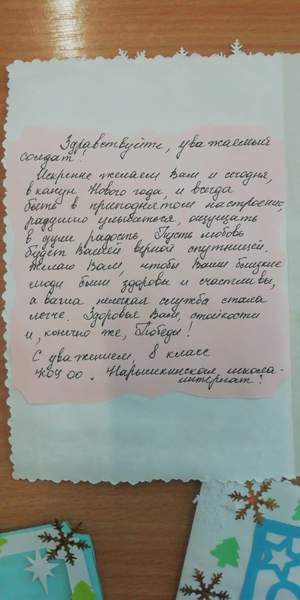 Здравствуйте, уважаемый
солдат!
Искренне желаем Вам и сегодня,
в канун Нового года, и всегда
быть в приподнятом настроении,
радушно улыбаться, ощущать
в душе радость. Пусть любовь
будет Вашей верной спутницей.
Желаю Вам, чтобы Ваши близкие
люди были здоровы и счастливы,
а ваша нелёгкая служба стала
легче. Здоровья Вам, стойкости
и, конечно же, Победы!
С уважением, 8 класс
КОУ ОО "Нарышкинская школа-
интернат".